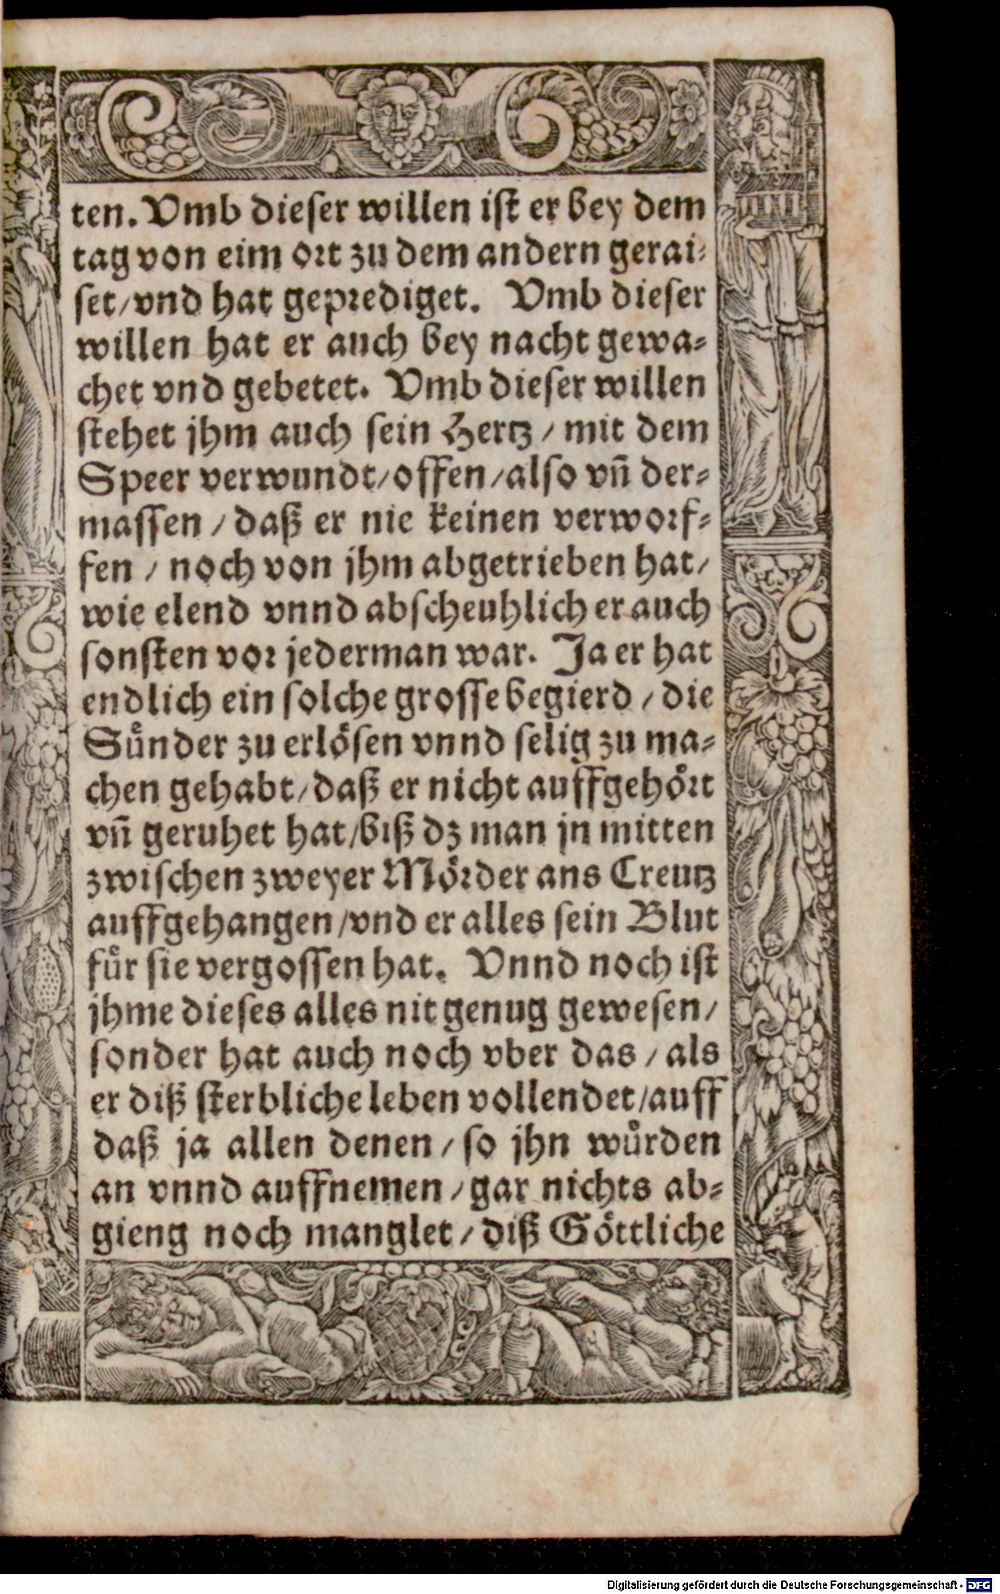 ten. Vmb dieser willen ist er bey dem
tag von eim ort zu dem andern gerai⸗
set/vnd hat geprediget. Vmb dieser
willen hat er auch bey nacht gewa⸗
chet vnd gebetet. Vmb dieser willen
stehet jhm auch sein Hertz/mit dem
Speer verwundt/offen/also vn̄ der⸗
massen/daß er nie keinen verworf⸗
fen/noch von jhm abgetrieben hat/
wie elend vnnd abscheuhlich er auch
sonsten vor jederman war. Ja er hat
endlich ein solche grosse begierd/die
Suͤnder zu erloͤsen vnnd selig zu ma⸗
chen gehabt/daß er nicht auffgehoͤrt
vn̄ geruhet hat/biß dz man jn mitten
zwischen zweyer Moͤrder ans Creutz
auffgehangen/vnd er alles sein Blut
fuͤr sie vergossen hat. Vnnd noch ist
jhme dieses alles nit genug gewesen/
sonder hat auch noch vber das/als
er diß sterbliche leben vollendet/auff
daß ja allen denen/so jhn wuͤrden
an vnnd auffnemen/gar nichts ab⸗
gieng noch manglet/diß Goͤttliche
Digitalisierung gefördert durch die Deutsche Forschungsgemeinschaft - DFG